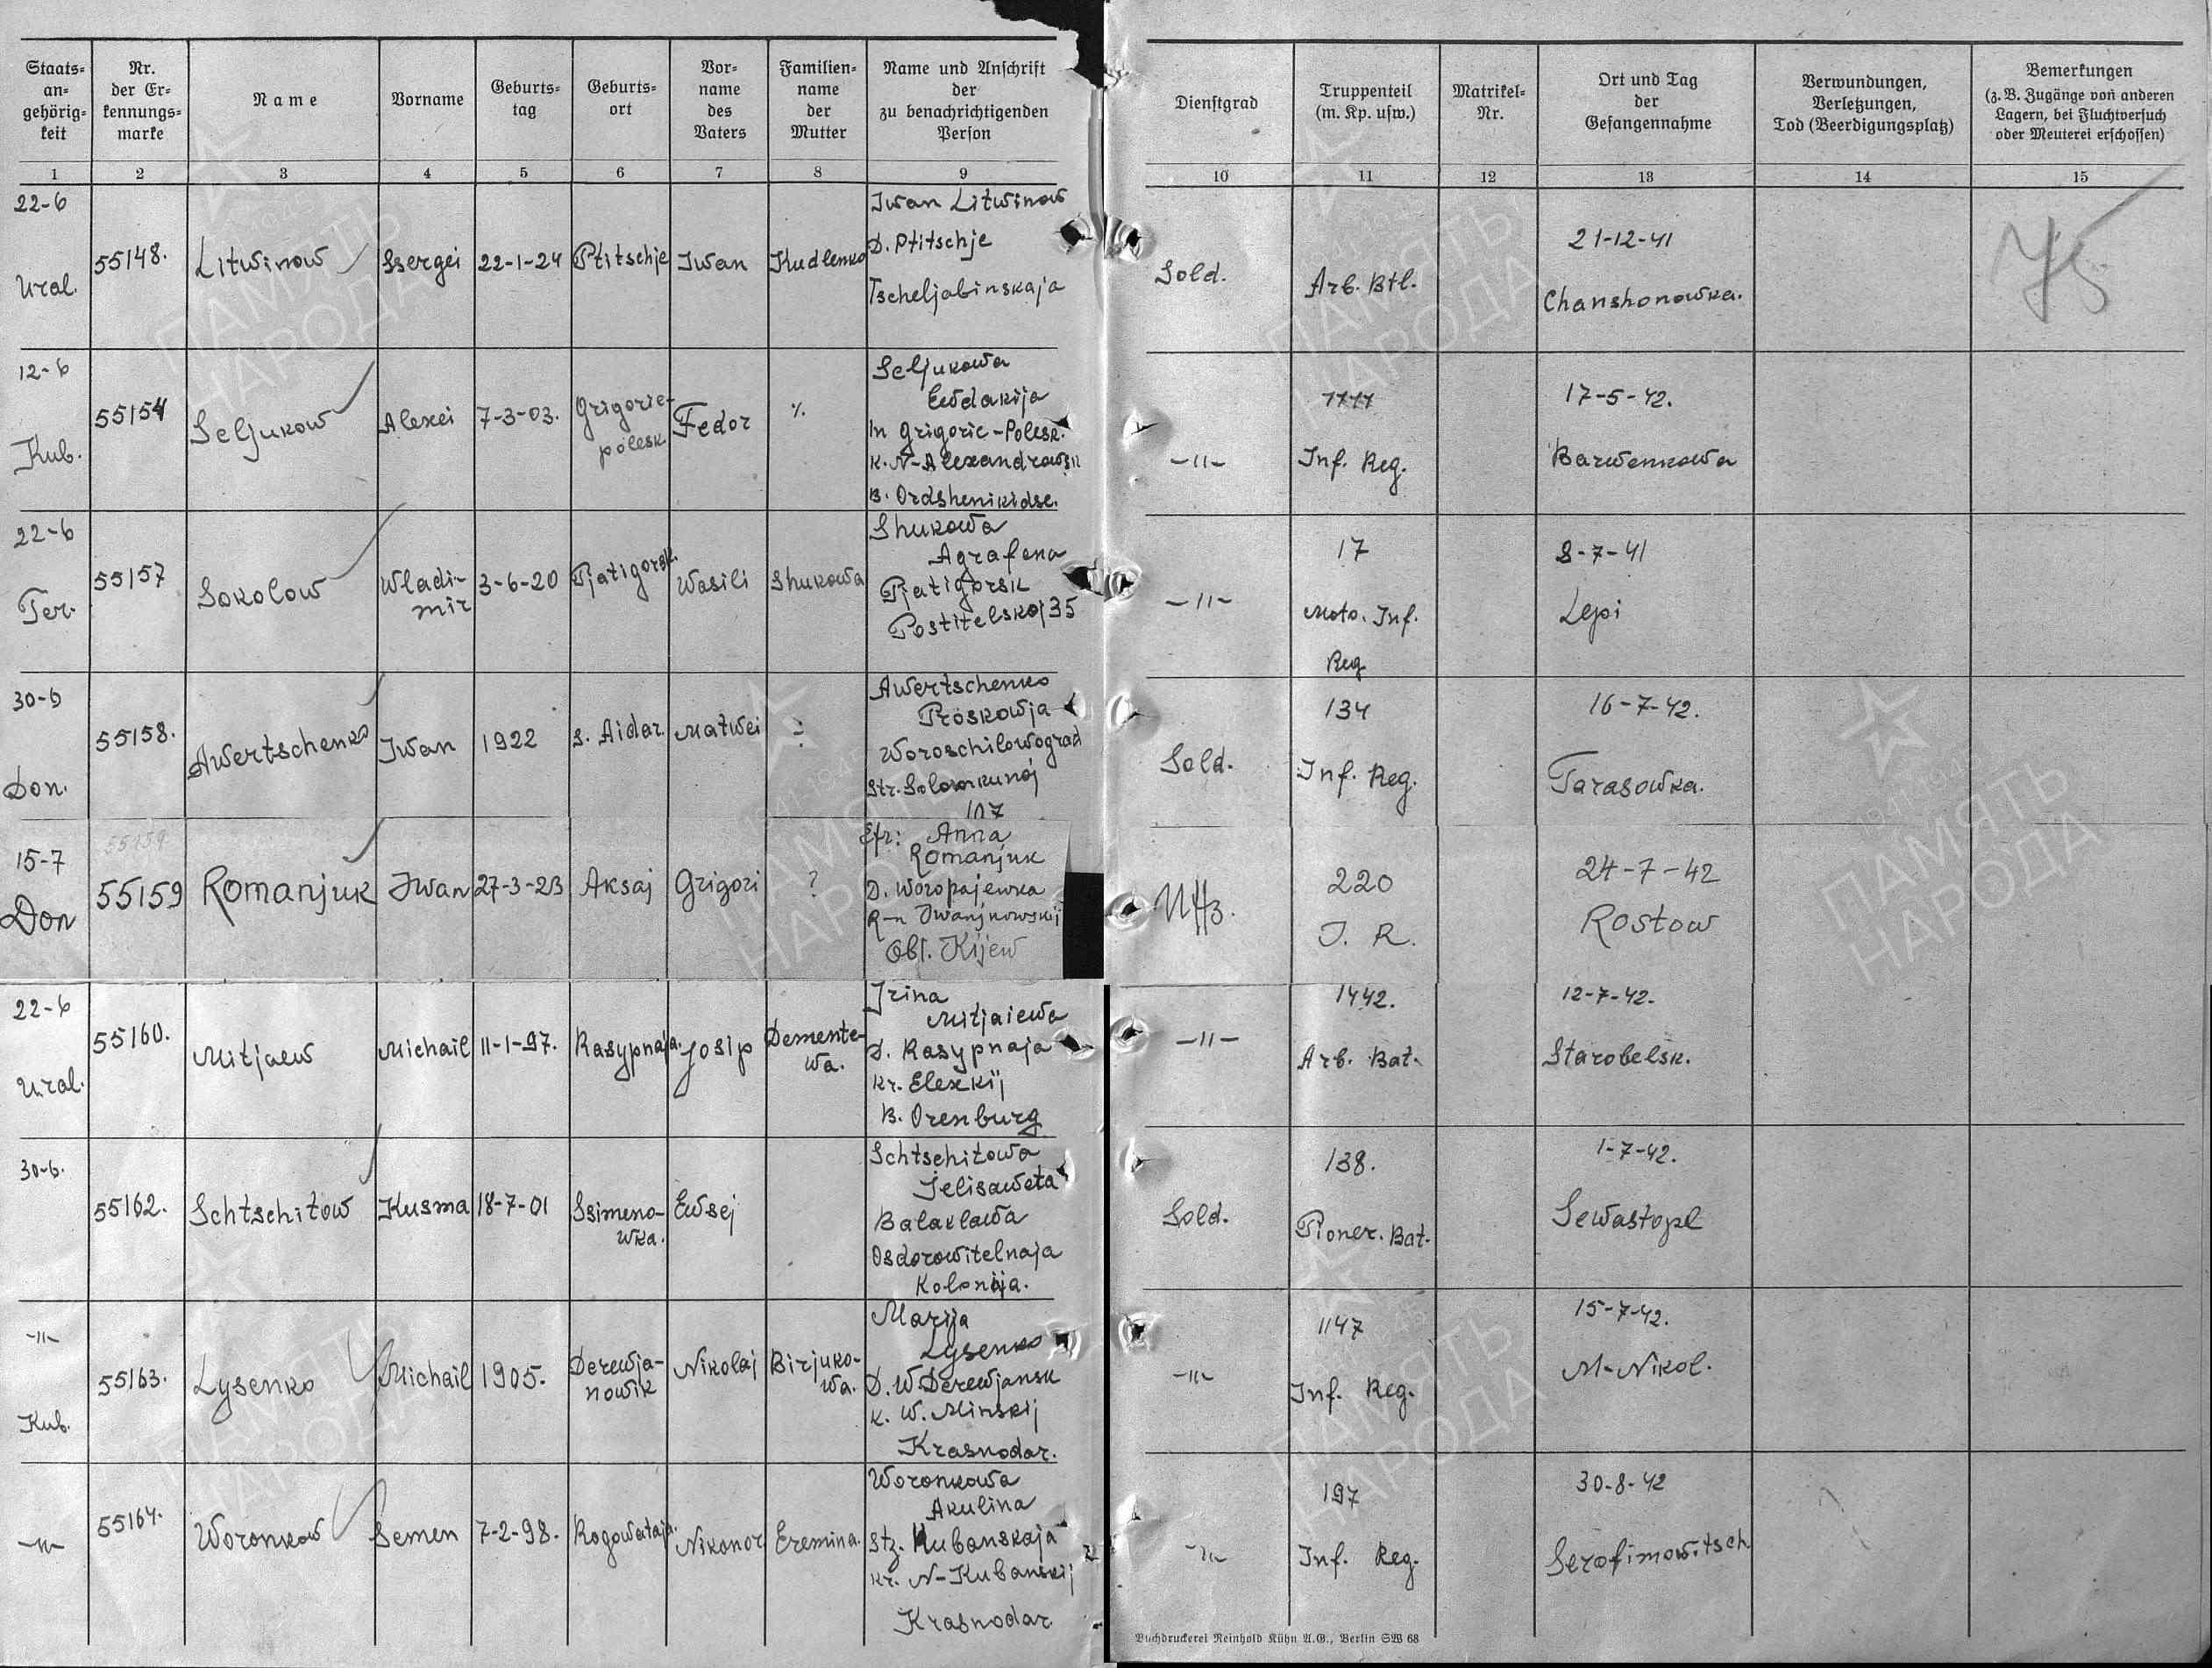 Staats=
an=
gehörig=
keit
Nr.
der Er=
kennungs=
marke
Name
Vorname
Geburts=
tag
Geburts=
ort
Vor=
name
des
Vaters
Familien=
name
der
Mutter
Name und Anschrift
der
zu benachrichtigenden
Person
Dienstgrad
Truppenteil
(m. Kp. usw.)
Matrikel=
Nr.
Ort und Tag
der
Gefangennahme
Verwundungen,
Verletzungen,
Tod (Beerdigungsplatz)
Bemerkungen
(z. B. Zugänge von anderen
Lagern, bei Fluchtversuch
oder Meuterei erschossen)
1 2 3 4 5 6 7 8 9 10 11 12 13 14 15
22-6
Ural.
55148.
Litwinow
Ssergei
22-1-24
Ptitschje
Iwan
Kudlenko
Iwan Litwinow
D. Ptitschje
Tscheljabinskaja
Sold.
Arb. Btl.
21-12-41
Chanshonowka.
12-6
Kub.
55154
Seljukow
Alexei
7-3-03.
Grigorie-
polesk
Fedor
%.
Seljukowa
Ewdakija
In Grigorie-Polesk.
K. N-Alexandrowsk
B. Ordshenikidse.
-"-
Inf. Reg.
17-5-42.
Barwenkowa
22-6
Ter.
55157
Sokolow
Wladi-
mir
3-6-20
Pjatigorsk.
Wasili
Shukowa
Shukowa
Agrafena
Pjatigorsk
Postitelskoj 35
-"-
17
Moto. Inf.
Reg
8-7-41
Lepi
30-6
Don.
55158.
Awertschenko
Iwan
1922
S. Aidar
Matwei
Awertschenko
Proskowja
Woroschilowograd
Str. Solomkunoj
107
Sold.
134
Inf. Reg.
16-7-42.
Tarasowka.
15-7
Don
55159
55159
Romanjuk
Iwan
27-3-23
Aksaj
Grigori
?
Efr: Anna
Romanjuk
D. Woropajewka
R-n Iwanjkowskij
Obl. Kijew
Uffz.
220
I. R.
24-7-42
Rostow
22-6
Ural.
55160.
Mitjaew
Michail
11-1-97.
Rasypnaja.
Josip
Demente-
wa.
Irina
Mitjaiewa
D. Rasypnaja
Kr. Elexkij
B. Orenburg
-"-
1442.
Arb. Bat.
12-7-42.
Starobelsk.
30-6.
55162.
Schtschitow
Kusma
18-7-01
Ssimeno-
wka.
Ewsej
Schtschitowa
Jelisaweta
Balaklawa
Osdorowitelnaja
Kolonija.
Sold.
138.
Pioner. Bat.
1-7-42.
Sewastopl
-"-
Kub.
55163.
Lysenko
Michail
1905.
Derewja-
nowik
Nikolaj
Birjuko-
wa.
Marija
Lysenko
D. W. Derewjansk
K. W. Minskij
Krasnodar.
-"-
1147
Inf. Reg.
15-7-42.
M-Nikol.
-"-
55164.
Woronkow
Semen
7-2-98.
Rogowataja.
Nikanor
Eremina.
Woronkowa
Akulina
Stz. Kubanskaja
Kr. N-Kubanskij
Krasnodar
-"-
197
Inf. Reg.
30-8-42
Serafimowitsch
Buchdruckerei Reinhold Kühn A.G., Berlin SW 68
ПАМЯТЬ
НАРОДА